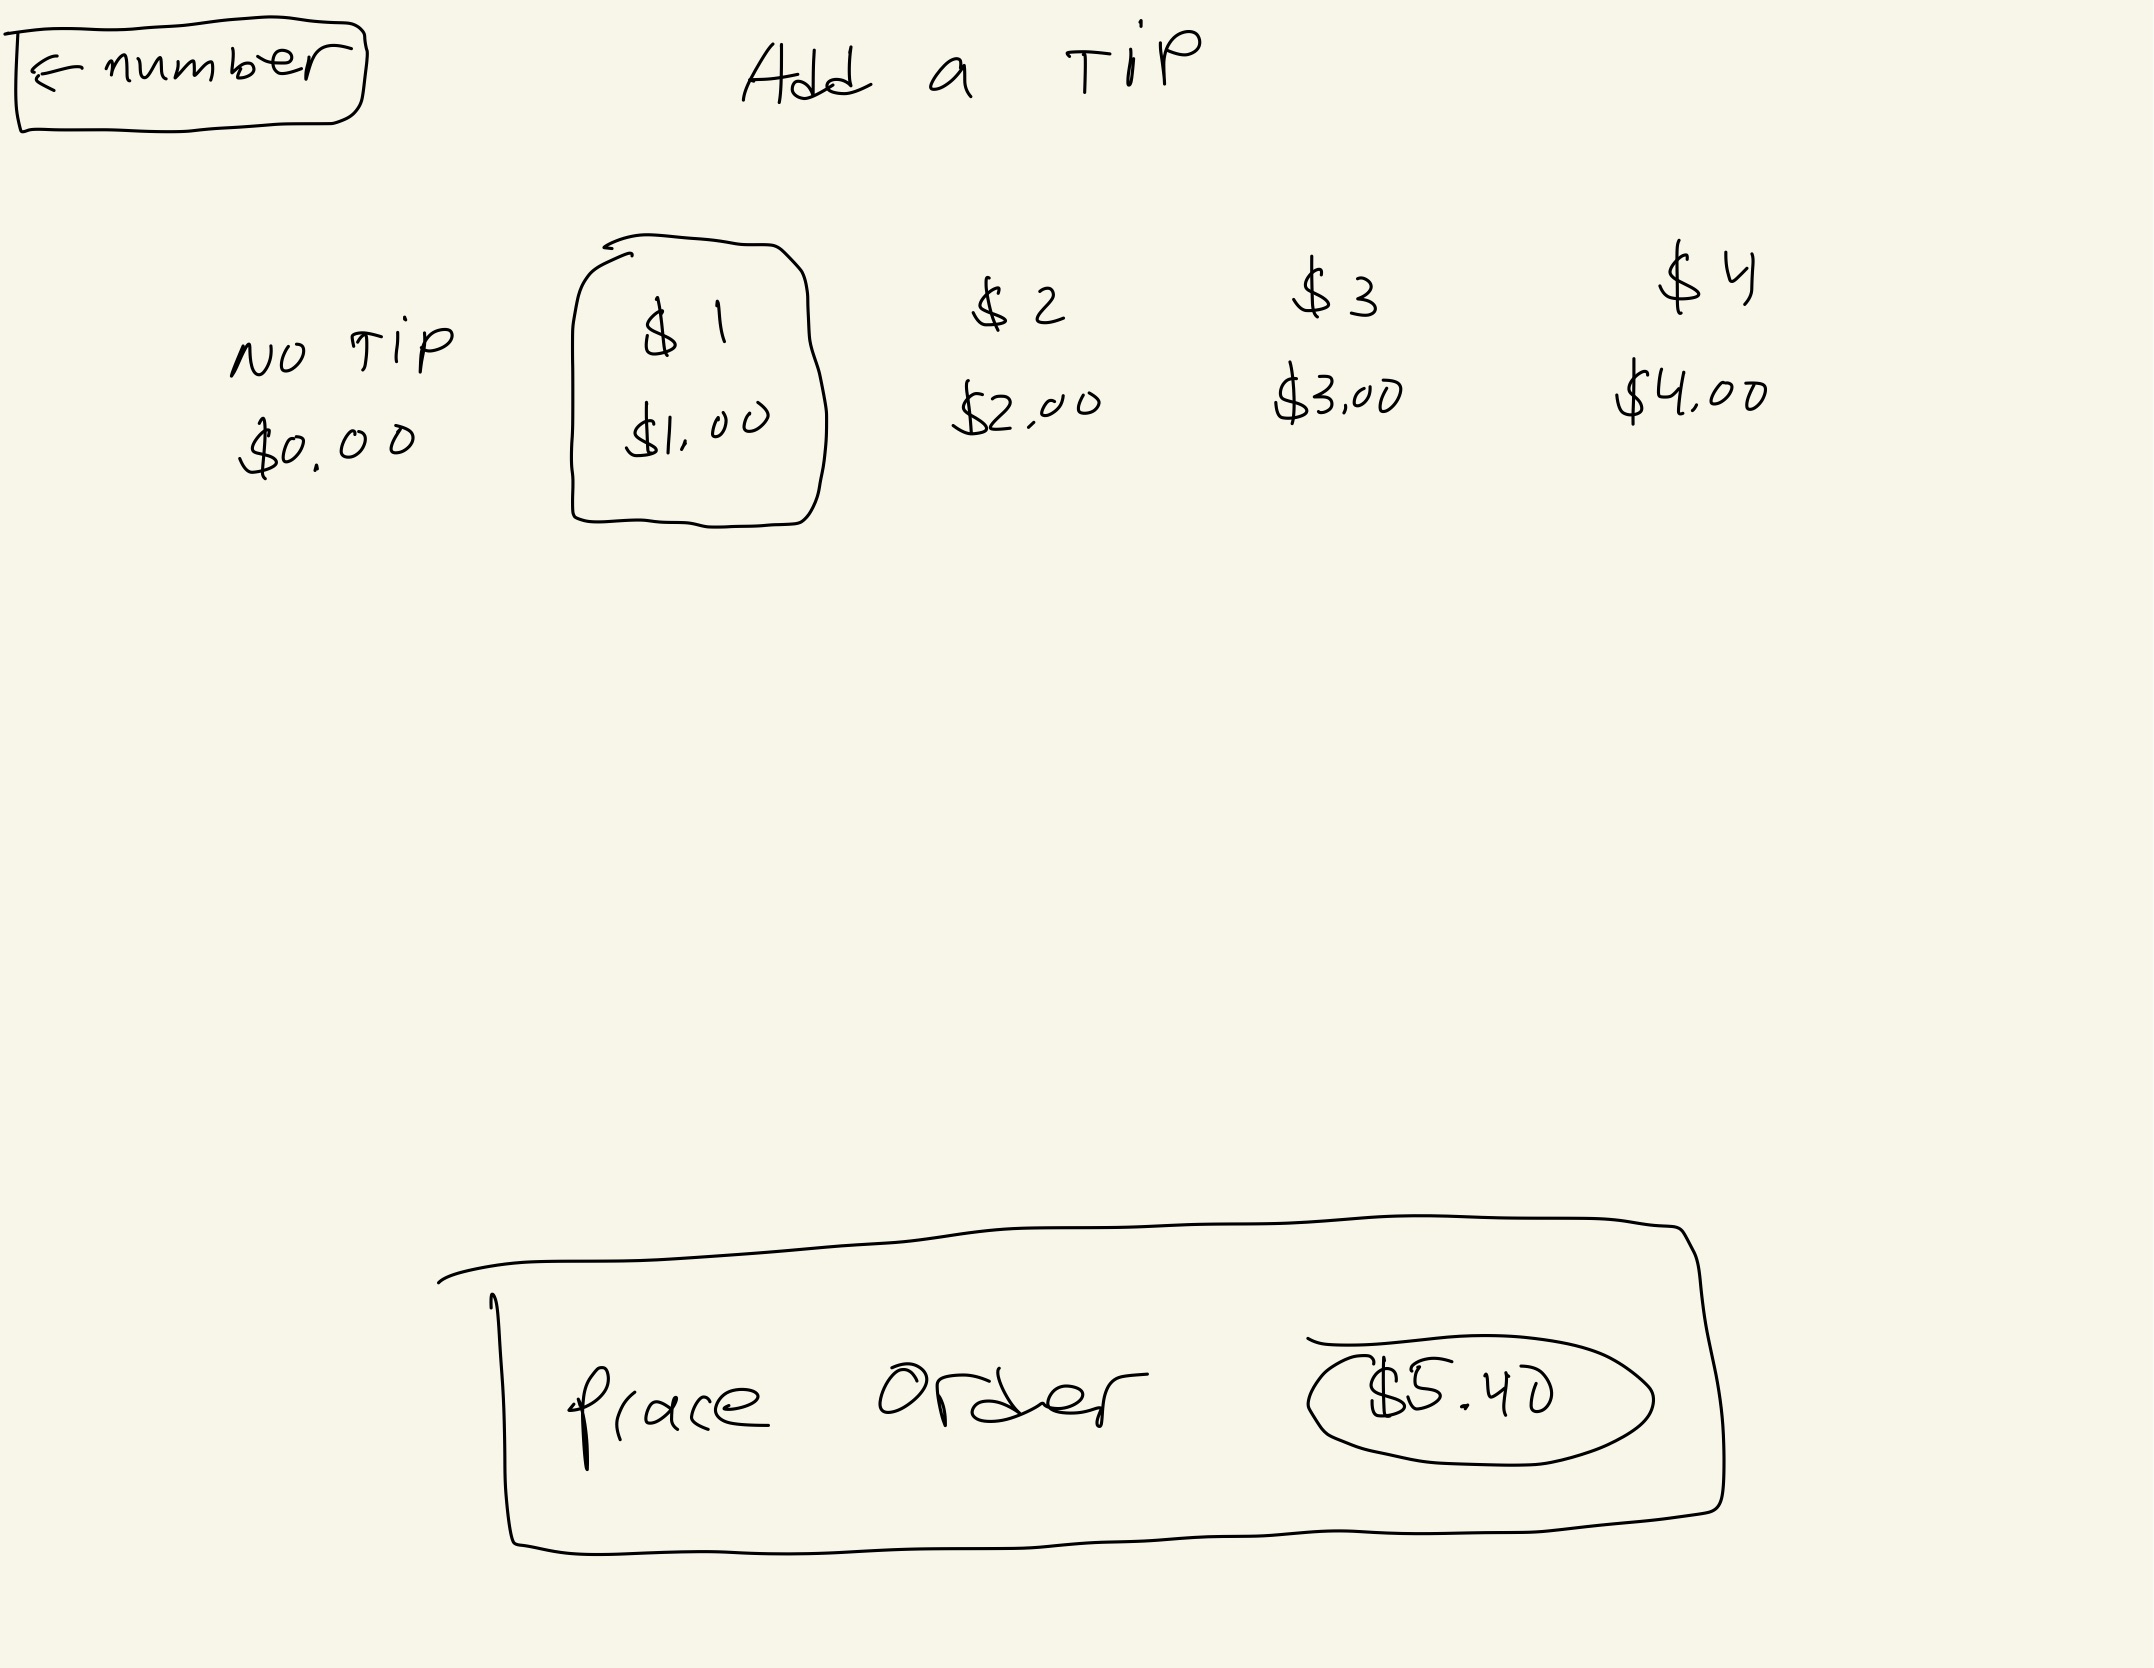 ← number
Add a TiP
NO TiP
$0.00
$1
$1.00
$2
$2.00
$3
$3.00
$4
$4.00
Place Order $5.40